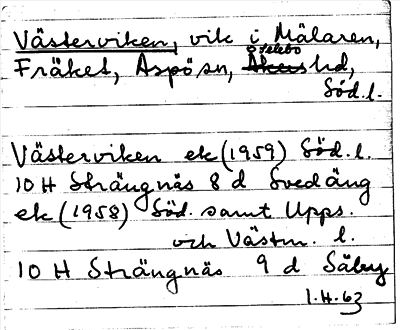 Västerviken, vik i Mälaren,
Fräket, Aspö sn, Åkers hd,
Söd. l.
Västerviken ek (1959) Söd. l.
10 H Strängnäs 8 d Svedäng
ek (1958) Söd. samt Upps.
och Västm. l.
10 H Strängnäs 9 d Säby
1.4.63